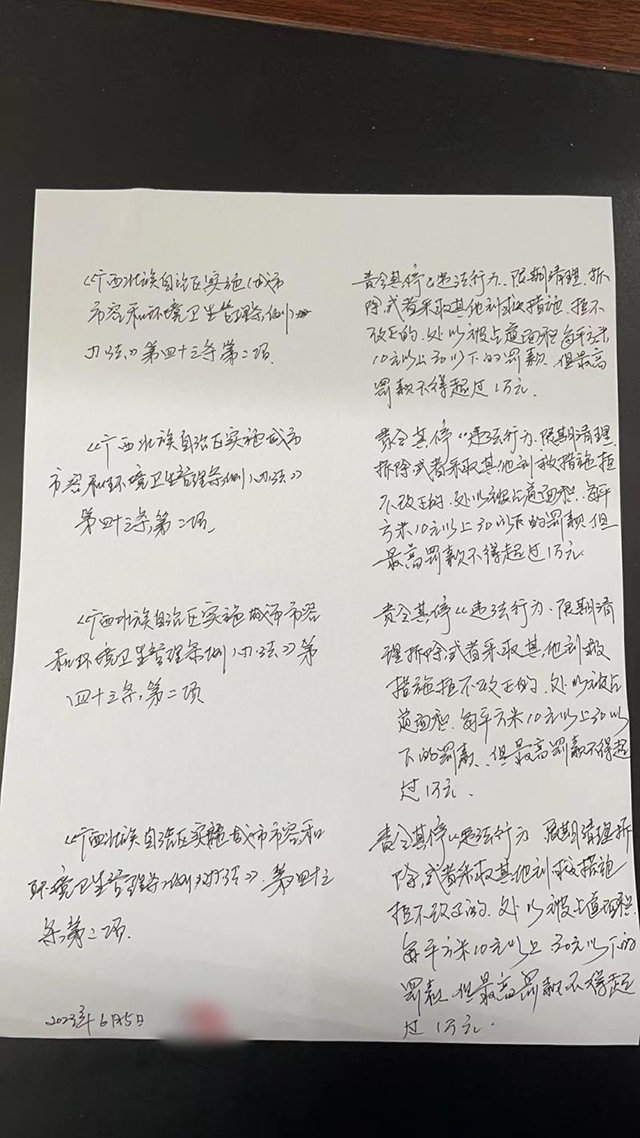 《广西壮族自治区实施〈城市
市容和环境卫生管理条例〉
办法》第四十三条第二项.
责令其停止违法行为、限期清理、拆
除或者采取其他补救措施,拒不
改正的,处以被占道面积每平方米
10元以上30以下的罚款,但最高
罚款不得超过1万元.
《广西壮族自治区实施城市
市容和环境卫生管理条例〉办法》
第四十三条,第二项.
责令其停止违法行为、限期清理
拆除或者采取其他补救措施拒
不改正的.处以被占道面积.每平
方米10元以上30以下的罚款.但
最高罚款不得超过1万元.
《广西壮族自治区实施城市市容
和环境卫生管理条例〉办法》第
四十三条,第二项
责令其停止违法行为、限期清
理拆除或者采取其他补救
措施拒不改正的、处以被占
道面积.每平方米10元以上30以
下的罚款、但最高罚款不得超
过1万元.
《广西壮族自治区实施城市市容和
环境卫生管理条例〉办法》.第四十三
条,第二项.
责令其停止违法行为 限期清理拆
除,或者采取其他补救措施
拒不改正的.处以被占道面积.
每平方米10元以上 30元以下的
罚款.但最高罚款不得超
过1万元.
2023年6月5日